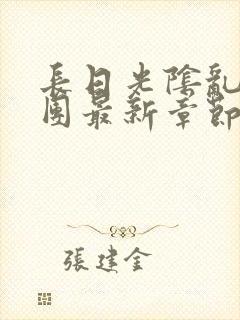 長日光陰亂
團最新章節
張建金